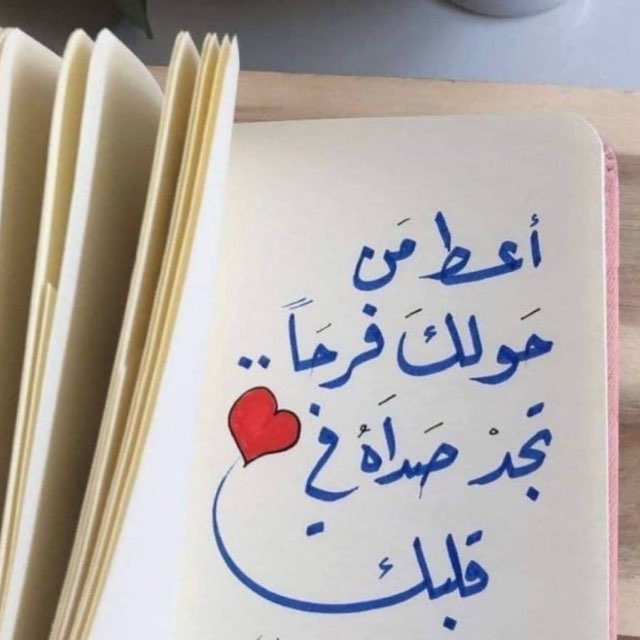 أعط مَن
حَولكَ فرحَاً ..
تجدْ صَداَهُ في
قلبك